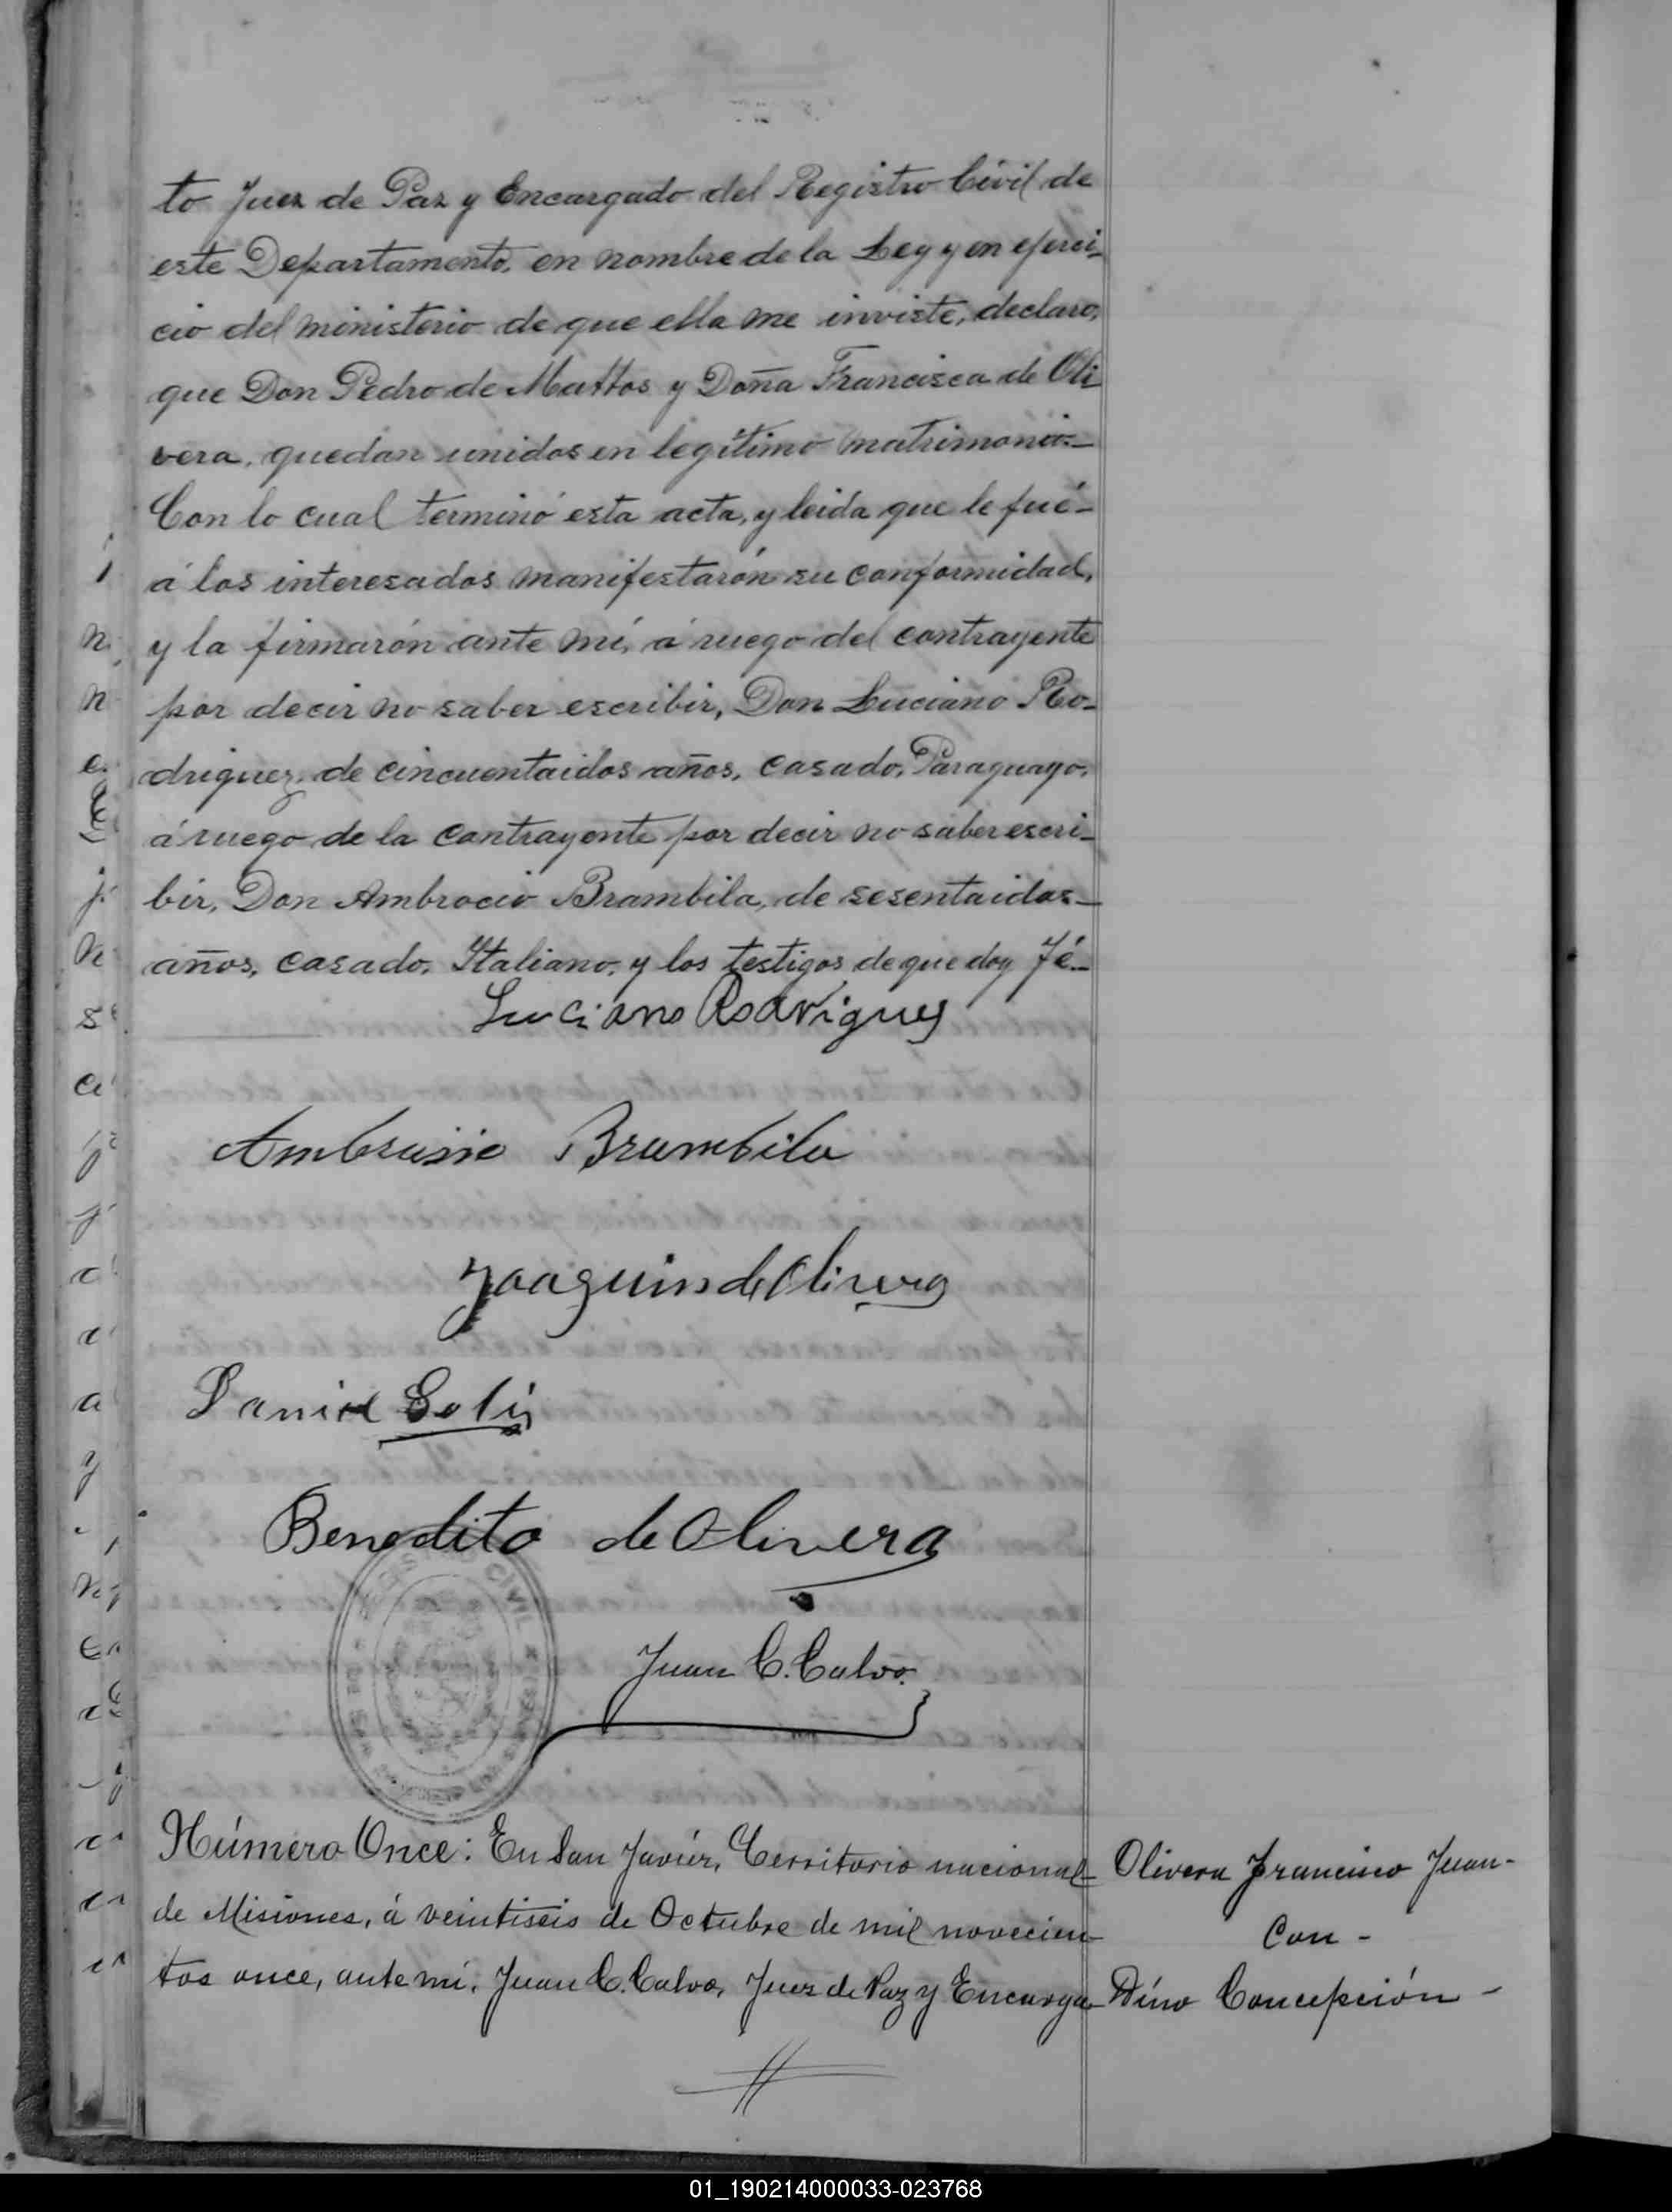 to Juez de Paz y Encargado del Registro Civil de
este Departamento, en nombre de la Ley y en ejerci-
cio del ministerio de que ella me inviste, declaro,
que Don Pedro de Mattos y Doña Francisca de Oli
vera, quedan unidos en legítimo matrimonio.-
Con lo cual terminó esta acta, y leida que le fué-
á los interesados manifestarón su conformidad,
y la firmarón ante mí, á ruego del contrayente
por decir no saber escribir, Don Luciano Ro-
driguez, de cincuentaidos años, casado, Paraguayo,
á ruego de la contrayente por decir no saber escri-
bir, Don Ambrocio Brambila, de sesentaidos-
años, casado, Italiano, y los testigos de que doy fé-
Luciano Rodrigues
Ambrusio Brambila
Joaquin de Olivera
Daniel Solis
Benedito de Olivera
CIVIL
Juan C. Calvo.
Número Once: En San Javier, Territorio nacional-
de Misiones, á veintiseis de Octubre de mil novecien-
tos once, ante mí, Juan C. Calvo, Juez de Paz y Encarga-
Olivera Francisco Juan-
Con -
Pino Concepción -
01_190214000033-023768